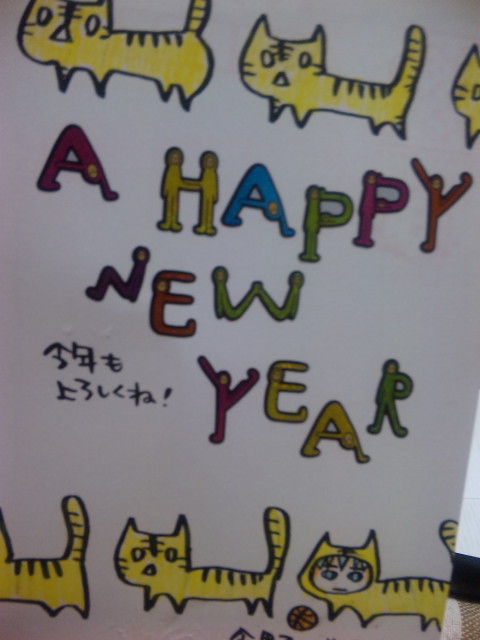 A HAPPY
NEW
YEAR
今年も
上ろしくね!